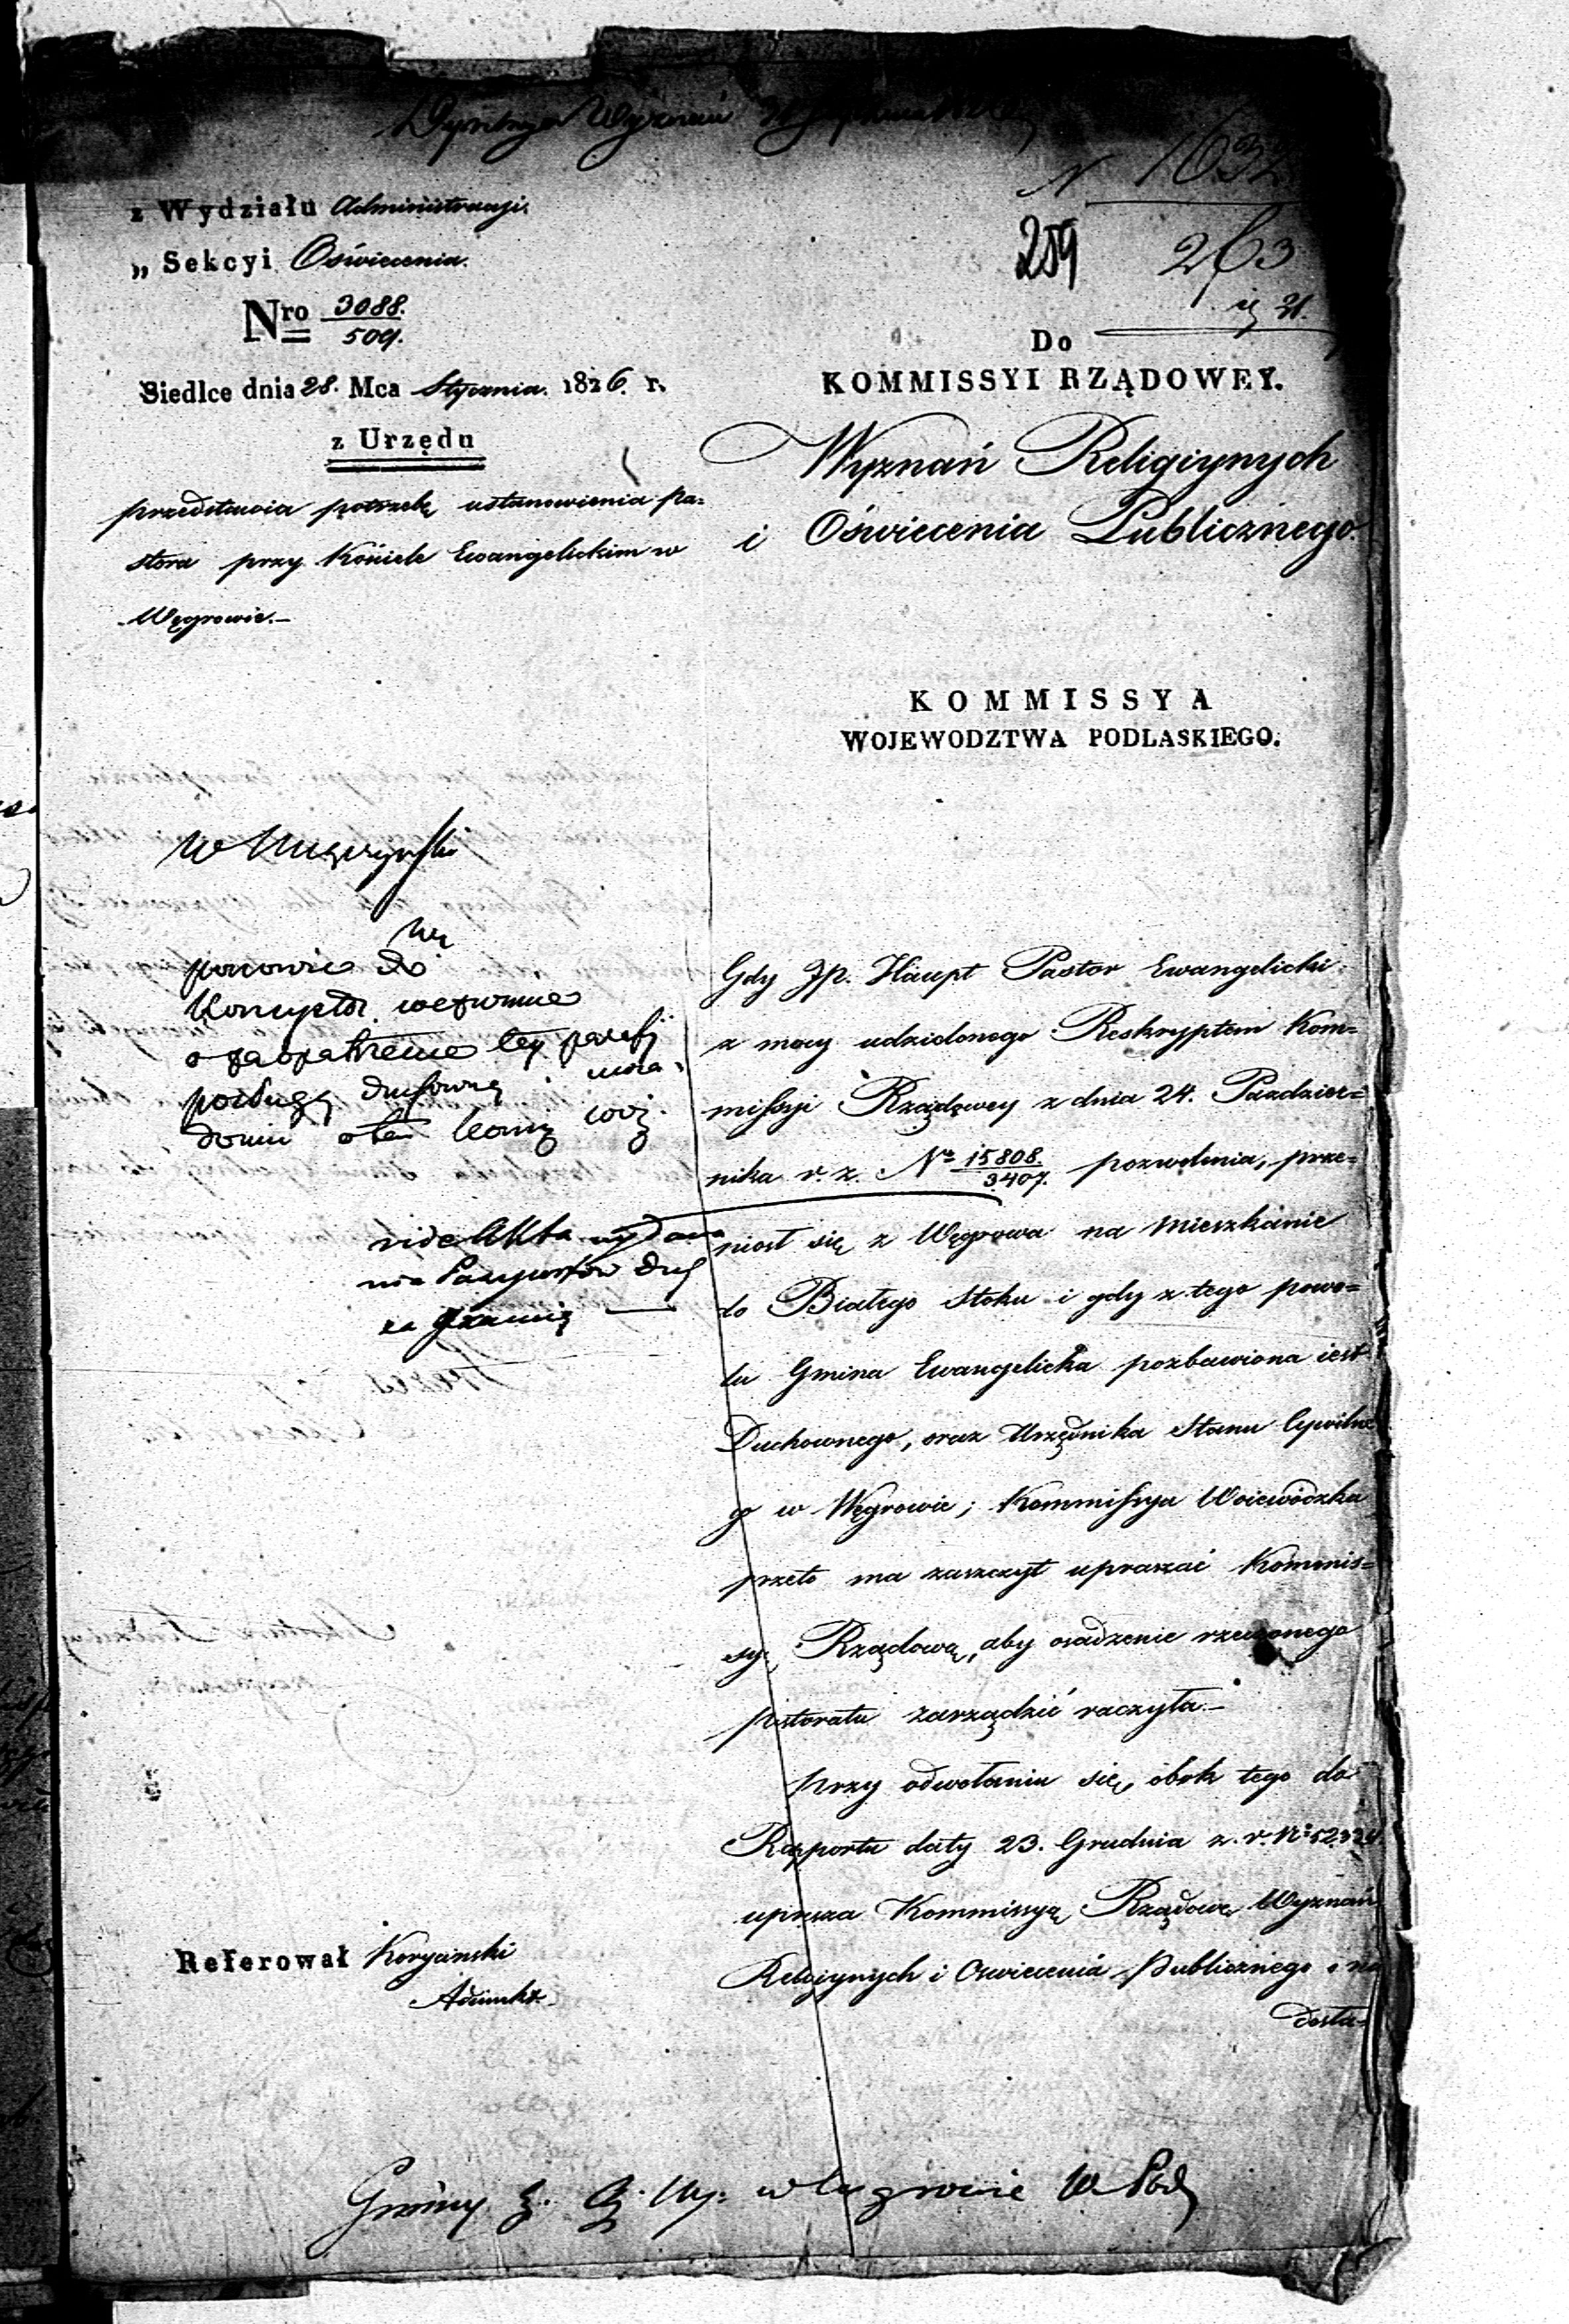 z Wydziału Administracji.
„ Sekcyi Oświecenia.
Nro 3088.
509.
Siedlce dnia 28. Mca Stycznia. 1826. r.
z Urzędu
przedstawia potrzebę ustanowienia pa=
stora przy Kościele Ewangelickim w
Węgrowie.—
N 1632
259
263
Do
KOMMISSYI RZĄDOWEY.
Wyznań Religiynych
i Oświecenia Publicznego.
KOMMISSYA
WOJEWODZTWA PODLASKIEGO.
ponowić do
o zaopatrzenie tey parafji
posługą duchowną
vide Akta wydawa
nia Paszportów Duch
za granicę —
Gdy Jp. Haupt Pastor Ewangelicki
z mocy udzielonego Reskryptem Kom=
missyi Rządowey z dnia 24. Pazdzier=
nika r. z. Nr 15808.
3407. pozwolenia, prze=
niosł się z Węgrowa na mieszkanie
do Białego Stoku i gdy z tego powo=
du Gmina Ewangelicka pozbawiona iest
Duchownego, oraz Urzędnika Stanu Cywilne
go w Węgrowie; Kommissya Woiewódzka
przeto ma zaszczyt upraszać Kommis=
syę Rządową, aby osadzenie rzeczonego
pastoratu zarządzić raczyła.—
przy odwołaniu się, obok tego do
Rapportu daty 23. Grudnia z. r. Nr 52324
uprasza Kommissyą Rządową Wyznań
Religiynych i Oswiecenia Publicznego o na
desła=
Referował Koryciński
Adiunkt.
Gminy E. A. Wy. w Węgrowie W. Podl